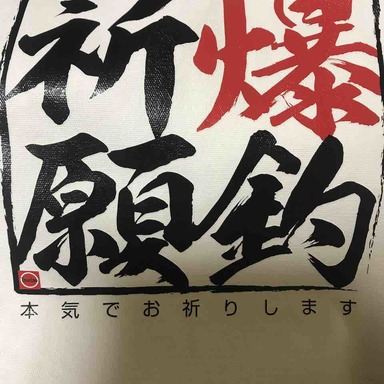 爆釣
祈願
本気でお祈りします